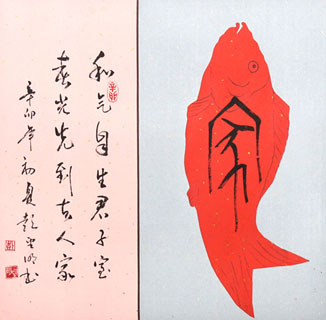 和气自生君子室
春光先到吉人家
辛卯年初夏彭
书